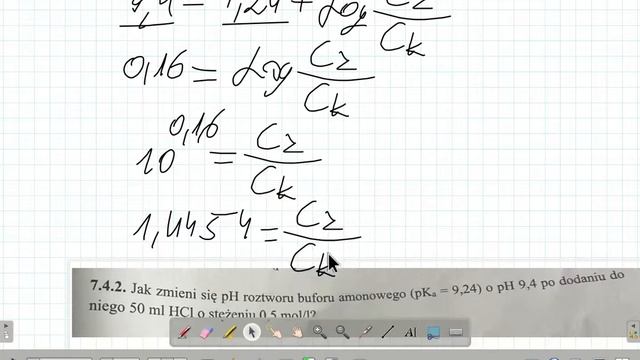 9,4 = 9,24 + log Cz/Ck
0,16 = log Cz/Ck
10^0,16 = Cz/Ck
1,4454 = Cz/Ck
7.4.2. Jak zmieni się pH roztworu buforu amonowego (pKa = 9,24) o pH 9,4 po dodaniu do
niego 50 ml HCl o stężeniu 0,5 mol/l?